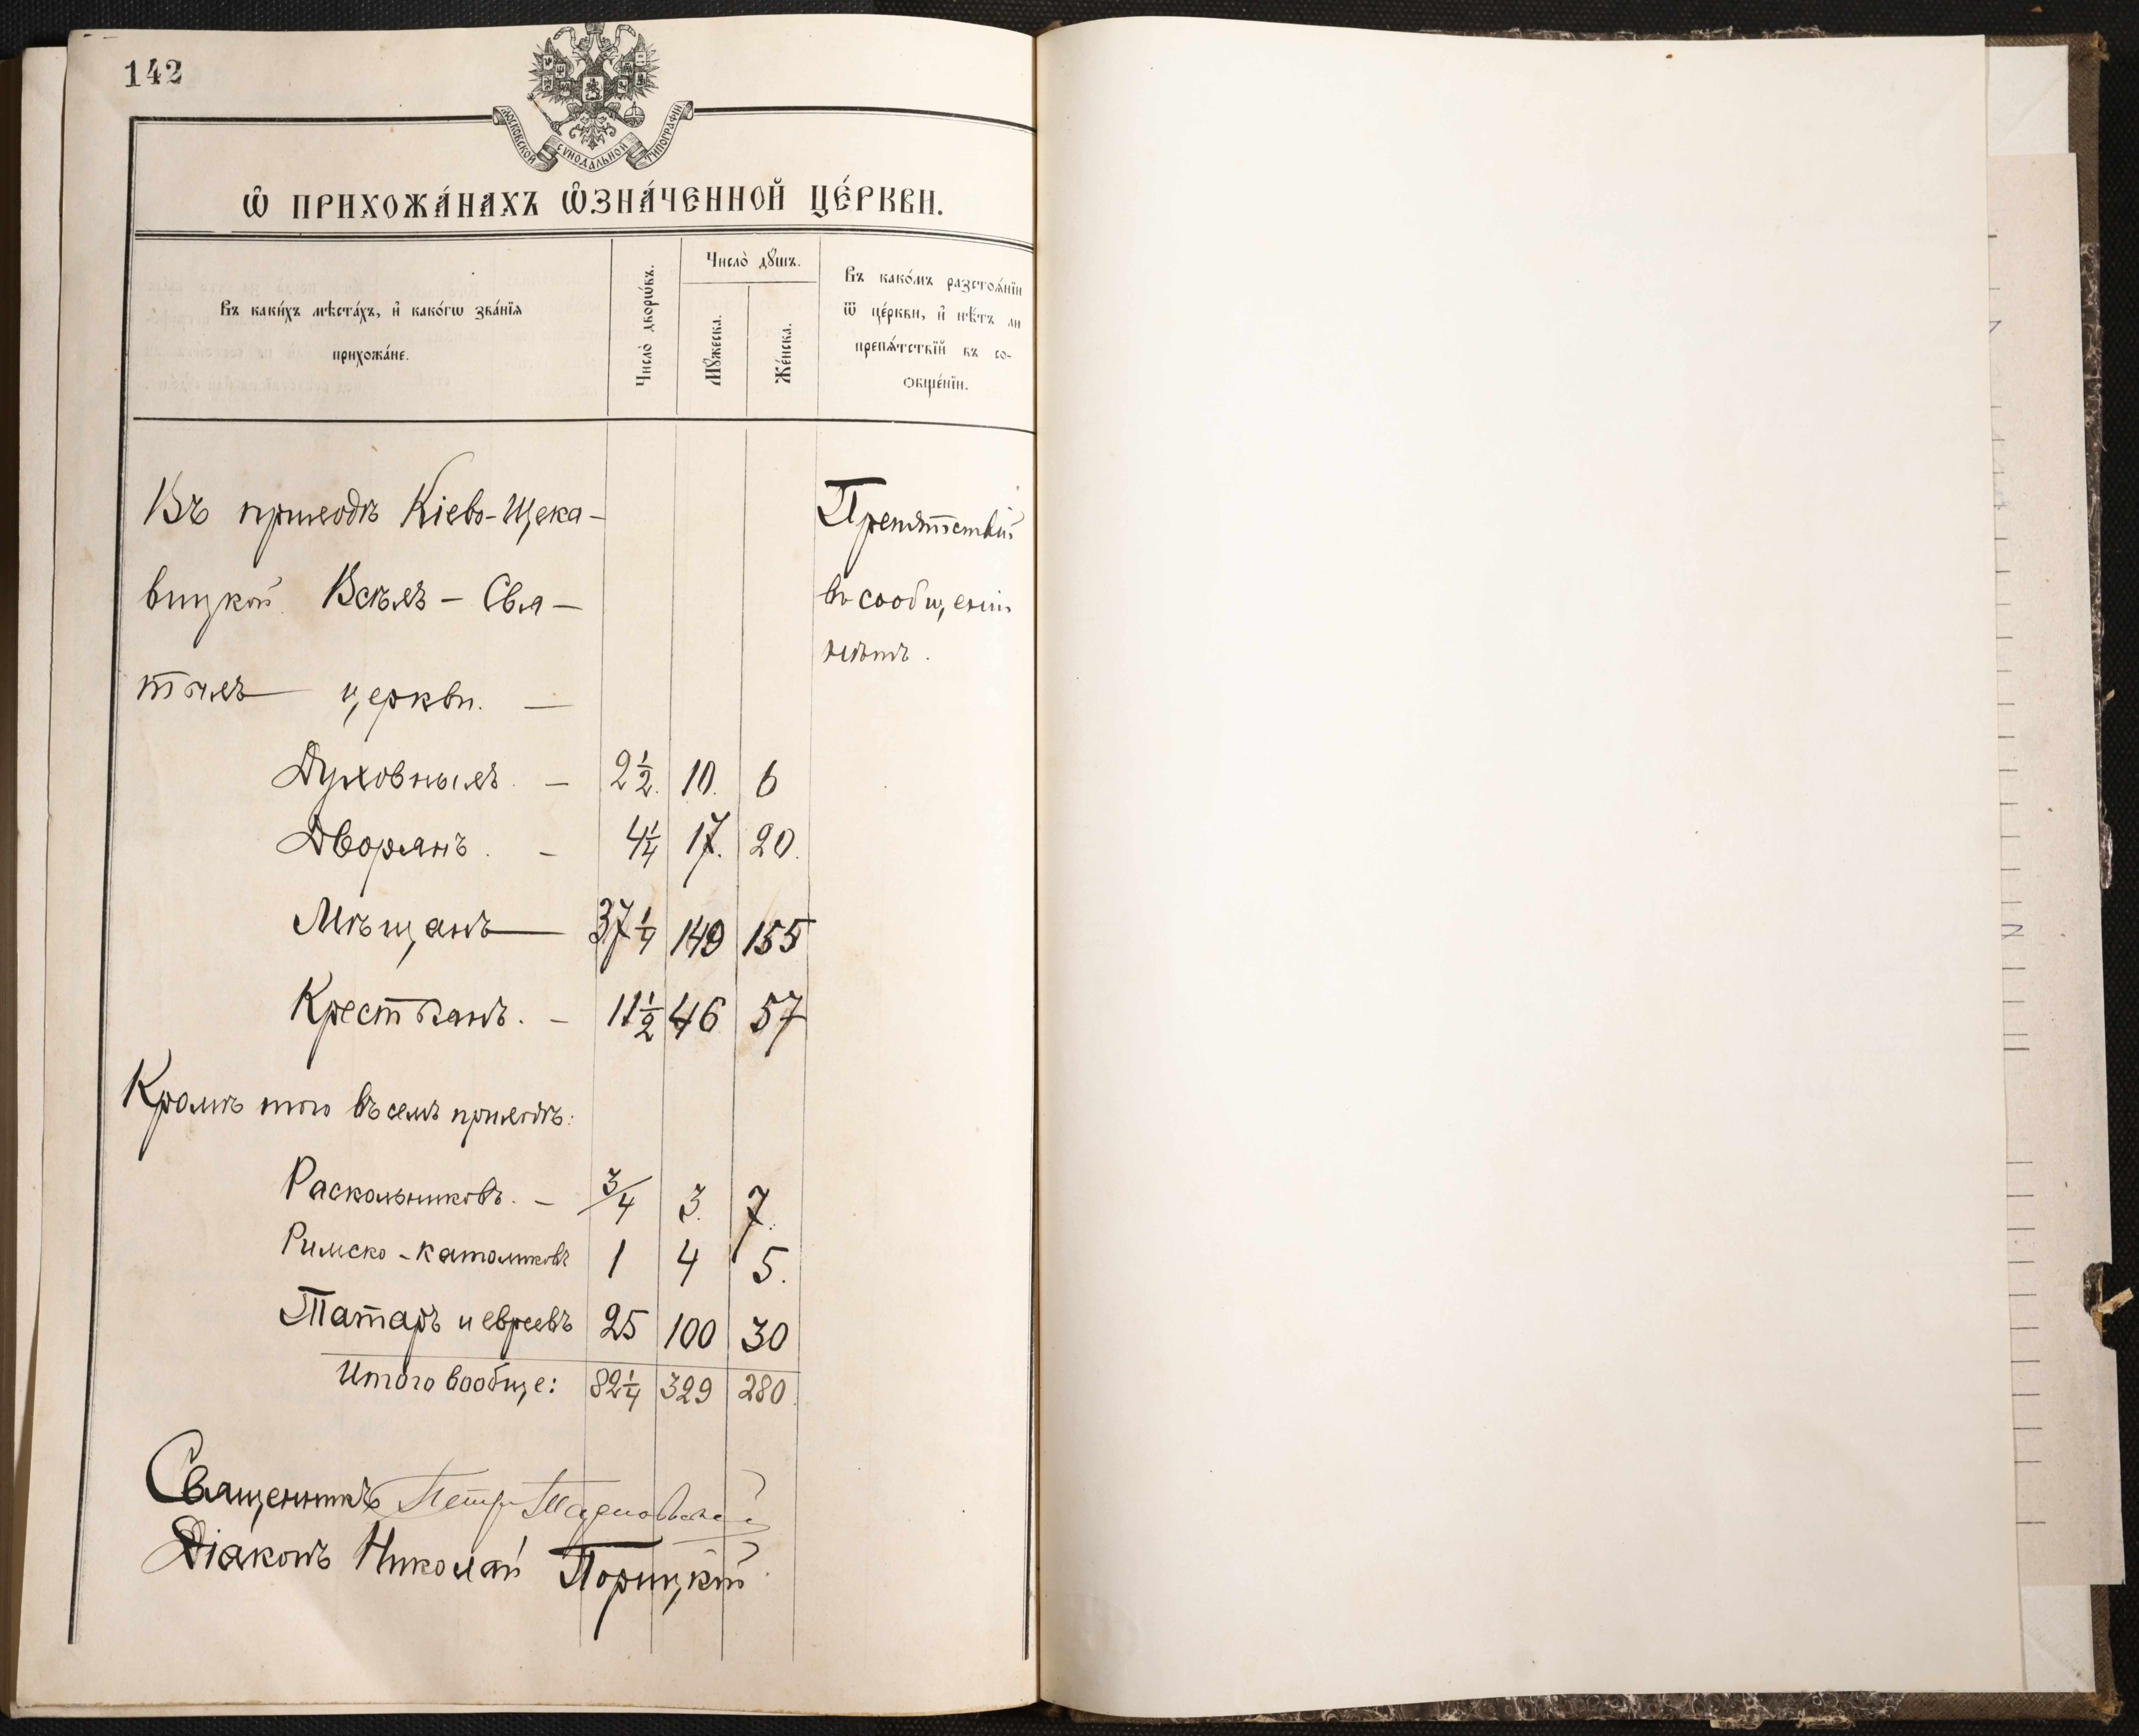 142
МОСКОВСКОЙ СѴНОДАЛЬНОЙ ТИПОГРАФІИ
Ѡ ПРИХОЖА́НАХЪ Ѡ҆ЗНА́ЧЕННОЙ ЦЕ́РКВИ.
Въ каки́хъ мѣста́хъ, и҆ како́гѡ зва́нїѧ
прихожа́не.
Число̀ дворѡ́въ.
Число̀ дꙋ́шъ.
Мꙋ́жеска.
Же́нска.
Въ како́мъ разстоѧ́нїи
ѿ це́ркви, и҆ нѣ́тъ ли
препѧ́тствїй въ со-
ѻбще́нїи.
Въ приходѣ Кіево-Щека-
вицкой Всѣхъ - Свя-
тыхъ церкви. —
Препятствій
въ сообщеніи
нѣтъ.
Духовныхъ. — 2½. 10. 6
Дворянъ. — 4¼ 17. 20.
Мѣщанъ — 37¼ 149 155
Крестьянъ. — 11½ 46 57
Кромѣ того въ семъ приходѣ:
Раскольниковъ. — 3/4 3. 7.
Римско-католиковъ 1 4 5.
Татаръ и евреевъ 25 100 30
Итого вообще: 82¼ 329 280.
Священникъ Петръ
Діаконъ Николай Порицкій